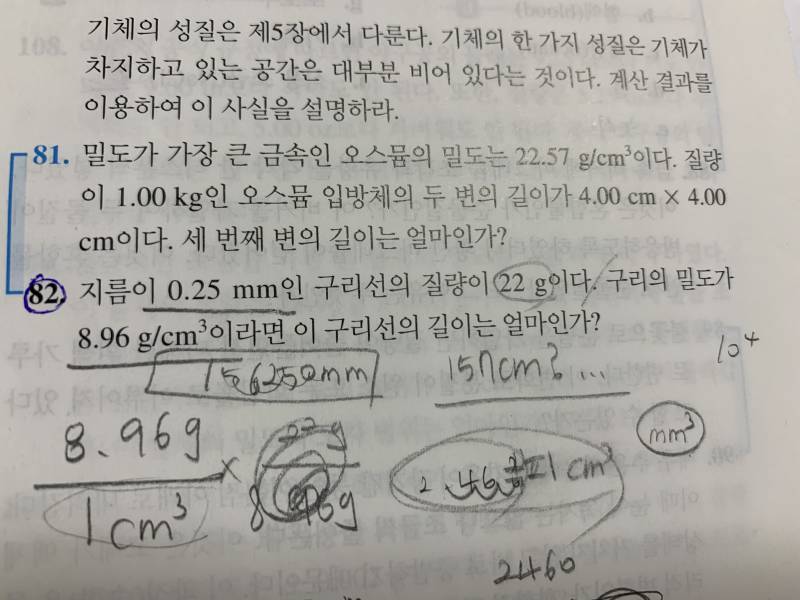 기체의 성질은 제5장에서 다룬다. 기체의 한 가지 성질은 기체가
차지하고 있는 공간은 대부분 비어 있다는 것이다. 계산 결과를
이용하여 이 사실을 설명하라.
81. 밀도가 가장 큰 금속인 오스뮴의 밀도는 22.57 g/cm³이다. 질량
이 1.00 kg인 오스뮴 입방체의 두 변의 길이가 4.00 cm × 4.00
cm이다. 세 번째 변의 길이는 얼마인가?
82. 지름이 0.25 mm인 구리선의 질량이 22 g이다. 구리의 밀도가
8.96 g/cm³이라면 이 구리선의 길이는 얼마인가?
10⁴
157cm? ...
mm³
8.96g
1cm³
×
22g
1cm³
2460